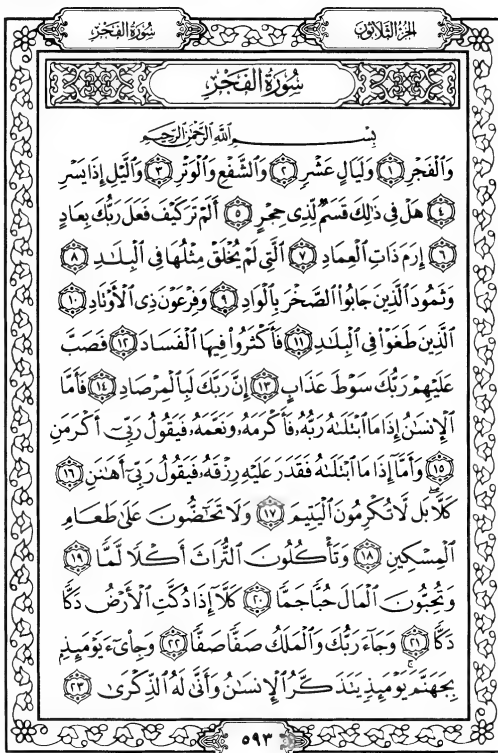 سُورَةُ الفَجْرِ
الجُزْءُ الثَّلَاثُونَ
سُورَةُ الفَجْرِ
بِسْمِ ٱللَّهِ ٱلرَّحْمَٰنِ ٱلرَّحِيمِ
وَٱلْفَجْرِ ۝١ وَلَيَالٍ عَشْرٍ ۝٢ وَٱلشَّفْعِ وَٱلْوَتْرِ ۝٣ وَٱلَّيْلِ إِذَا يَسْرِ
۝٤ هَلْ فِي ذَٰلِكَ قَسَمٌ لِّذِي حِجْرٍ ۝٥ أَلَمْ تَرَ كَيْفَ فَعَلَ رَبُّكَ بِعَادٍ
۝٦ إِرَمَ ذَاتِ ٱلْعِمَادِ ۝٧ ٱلَّتِي لَمْ يُخْلَقْ مِثْلُهَا فِي ٱلْبِلَٰدِ ۝٨
وَثَمُودَ ٱلَّذِينَ جَابُوا۟ ٱلصَّخْرَ بِٱلْوَادِ ۝٩ وَفِرْعَوْنَ ذِي ٱلْأَوْتَادِ ۝١٠
ٱلَّذِينَ طَغَوْا۟ فِي ٱلْبِلَٰدِ ۝١١ فَأَكْثَرُوا۟ فِيهَا ٱلْفَسَادَ ۝١٢ فَصَبَّ
عَلَيْهِمْ رَبُّكَ سَوْطَ عَذَابٍ ۝١٣ إِنَّ رَبَّكَ لَبِٱلْمِرْصَادِ ۝١٤ فَأَمَّا
ٱلْإِنسَٰنُ إِذَا مَا ٱبْتَلَىٰهُ رَبُّهُۥ فَأَكْرَمَهُۥ وَنَعَّمَهُۥ فَيَقُولُ رَبِّيٓ أَكْرَمَنِ
۝١٥ وَأَمَّآ إِذَا مَا ٱبْتَلَىٰهُ فَقَدَرَ عَلَيْهِ رِزْقَهُۥ فَيَقُولُ رَبِّيٓ أَهَٰنَنِ ۝١٦
كَلَّا ۖ بَل لَّا تُكْرِمُونَ ٱلْيَتِيمَ ۝١٧ وَلَا تَحَٰٓضُّونَ عَلَىٰ طَعَامِ
ٱلْمِسْكِينِ ۝١٨ وَتَأْكُلُونَ ٱلتُّرَاثَ أَكْلًا لَّمًّا ۝١٩
وَتُحِبُّونَ ٱلْمَالَ حُبًّا جَمًّا ۝٢٠ كَلَّآ إِذَا دُكَّتِ ٱلْأَرْضُ دَكًّا
دَكًّا ۝٢١ وَجَآءَ رَبُّكَ وَٱلْمَلَكُ صَفًّا صَفًّا ۝٢٢ وَجِا۟يٓءَ يَوْمَئِذٍۭ
بِجَهَنَّمَ ۚ يَوْمَئِذٍ يَتَذَكَّرُ ٱلْإِنسَٰنُ وَأَنَّىٰ لَهُ ٱلذِّكْرَىٰ ۝٢٣
٥٩٣